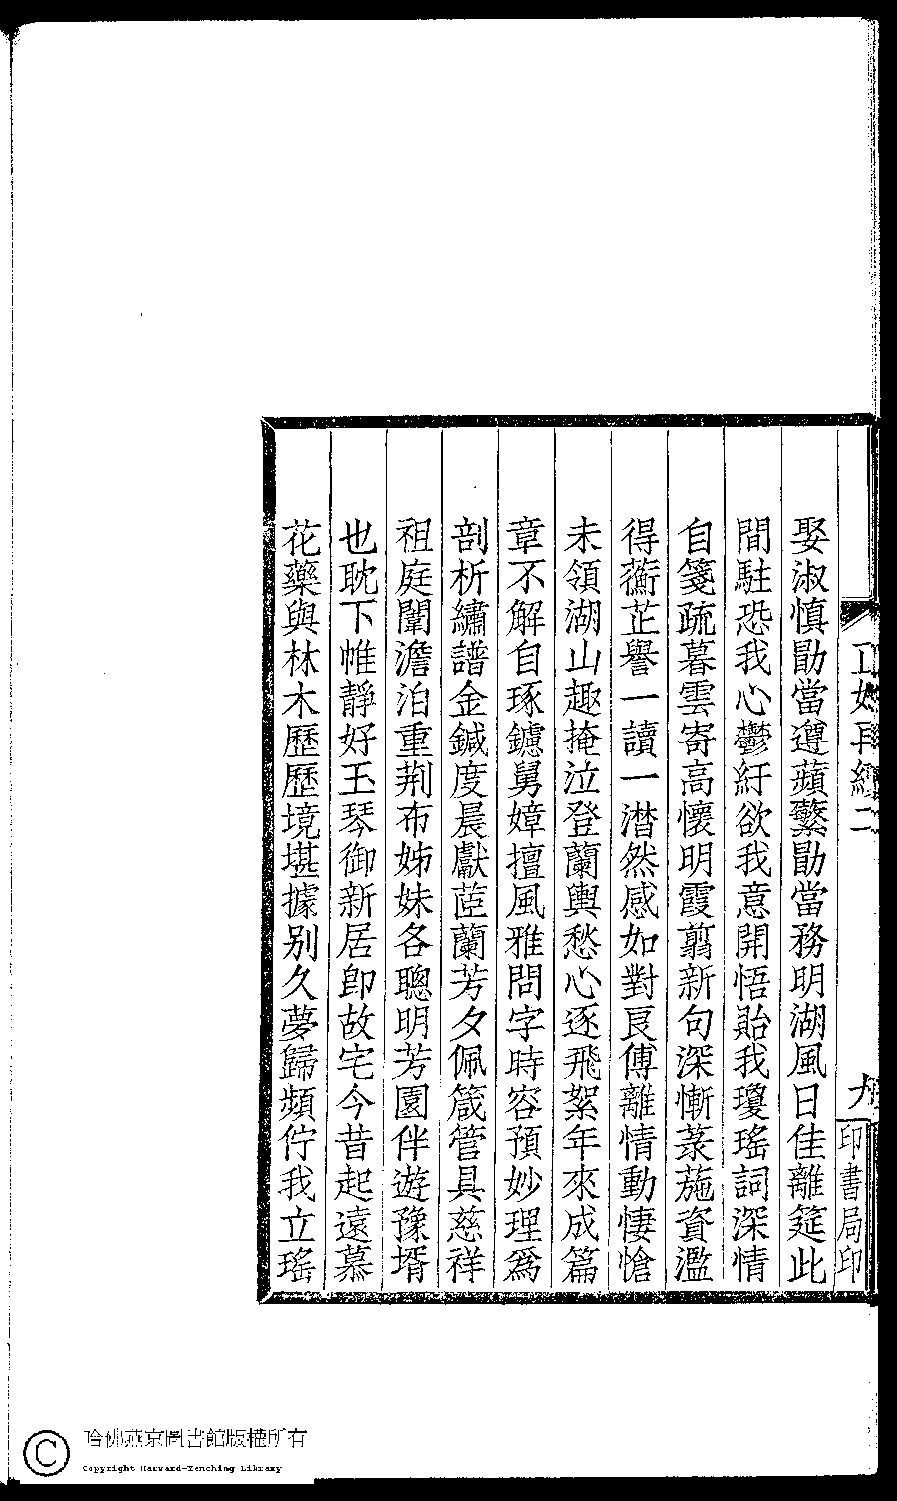 娶淑慎勖當遵蘋蘩勖當務明湖風日佳離筵此
間駐恐我心鬱紆欲我意開悟貽我瓊瑤詞深情
自箋疏暮雲寄高懷明霞翦新句深慚菉葹資濫
得蘅芷譽一讀一潸然感如對良傅離情動悽愴
未領湖山趣掩泣登蘭輿愁心逐飛絮年來成篇
章不解自琢鑢舅嫜擅風雅問字時容預妙理爲
剖析繡譜金鍼度晨獻茝蘭芳夕佩箴管具慈祥
祖庭闈澹泊重荆布姊妹各聰明芳園伴遊豫壻
也耽下帷靜好玉琴御新居卽故宅今昔起遠慕
花藥與林木歷歷境堪據别久夢歸頻佇我立瑤
二
九
印書局印
哈佛燕京圖書館版權所有
Copyright Harvard-Yenching Library